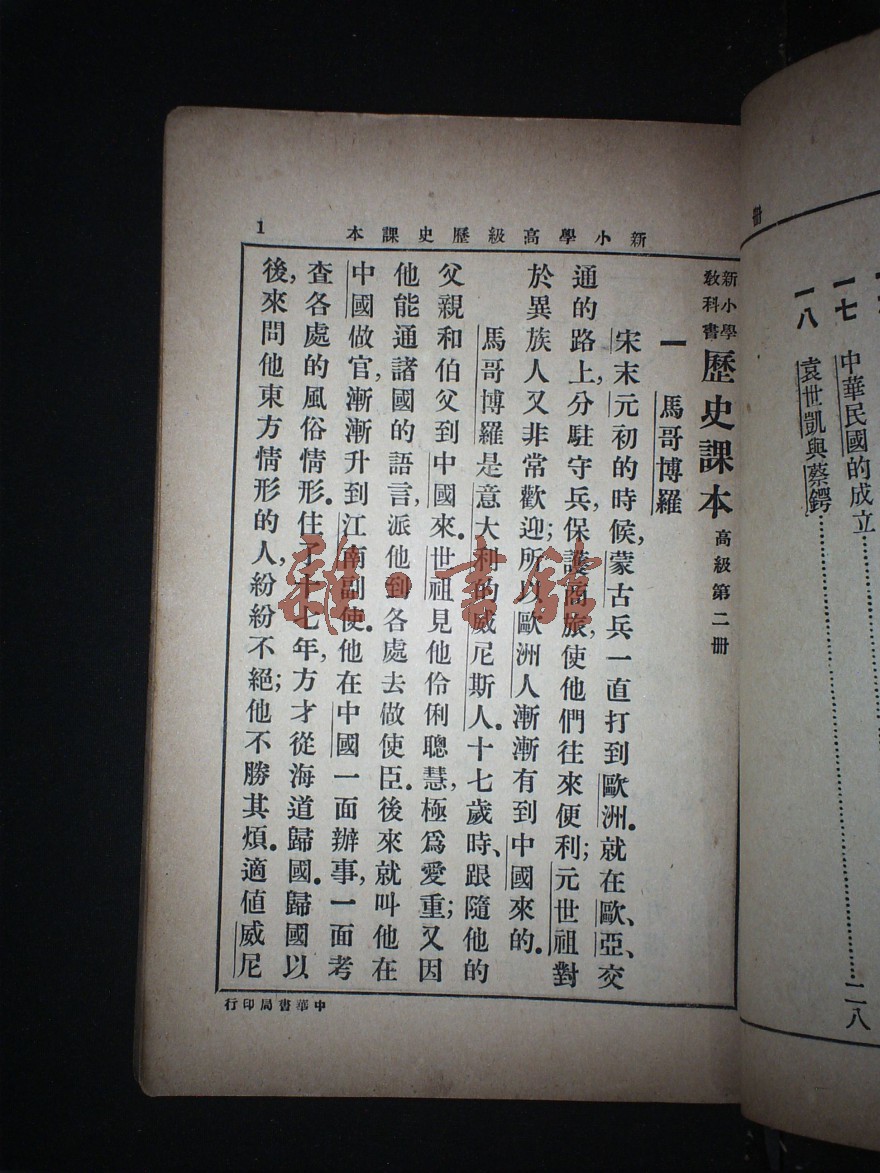 冊
一七　中華民國的成立……………………
一八　袁世凱與蔡鍔……………………二八
新小學高級歷史課本
1
新小學教科書 歷史課本 高級第二冊
一　馬哥博羅
宋末元初的時候，蒙古兵一直打到歐洲。就在歐、亞、交
通的路上，分駐守兵，保護商旅，使他們往來便利；元世祖對
於異族人又非常歡迎；所以歐洲人漸漸有到中國來的。
馬哥博羅是意大利的威尼斯人。十七歲時、跟隨他的
父親和伯父到中國來。世祖見他伶俐聰慧，極爲愛重；又因
他能通諸國的語言，派他到各處去做使臣。後來就叫他在
中國做官，漸漸升到江南副使。他在中國一面辦事，一面考
查各處的風俗情形。住了十七年，方才從海道歸國。歸國以
後，來問他東方情形的人，紛紛不絕；他不勝其煩。適值威尼
中華書局印行
雜·書館